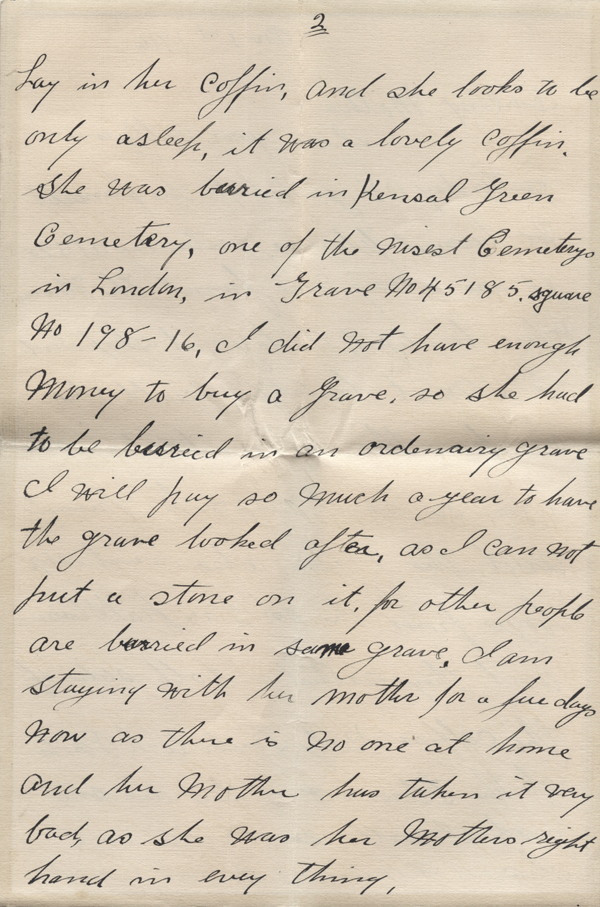 2
Lay in her Coffin, and she looks to be
only asleep, it was a lovely Coffin.
She was buried in Kensal Green
Cemetery, one of the nisest Cemeterys
in London, in Grave No 45185. square
No 198-16, I did not have enough
Money to buy a Grave, so she had
to be buried in an ordenairy grave
I will pay so much a year to have
the grave looked after, as I can not
put a stone on it, for other people
are burried in same grave. I am
staying with her mother for a few days
now as there is no one at home
and her Mother has taken it very
bad, as she was her Mothers right
hand in every thing,